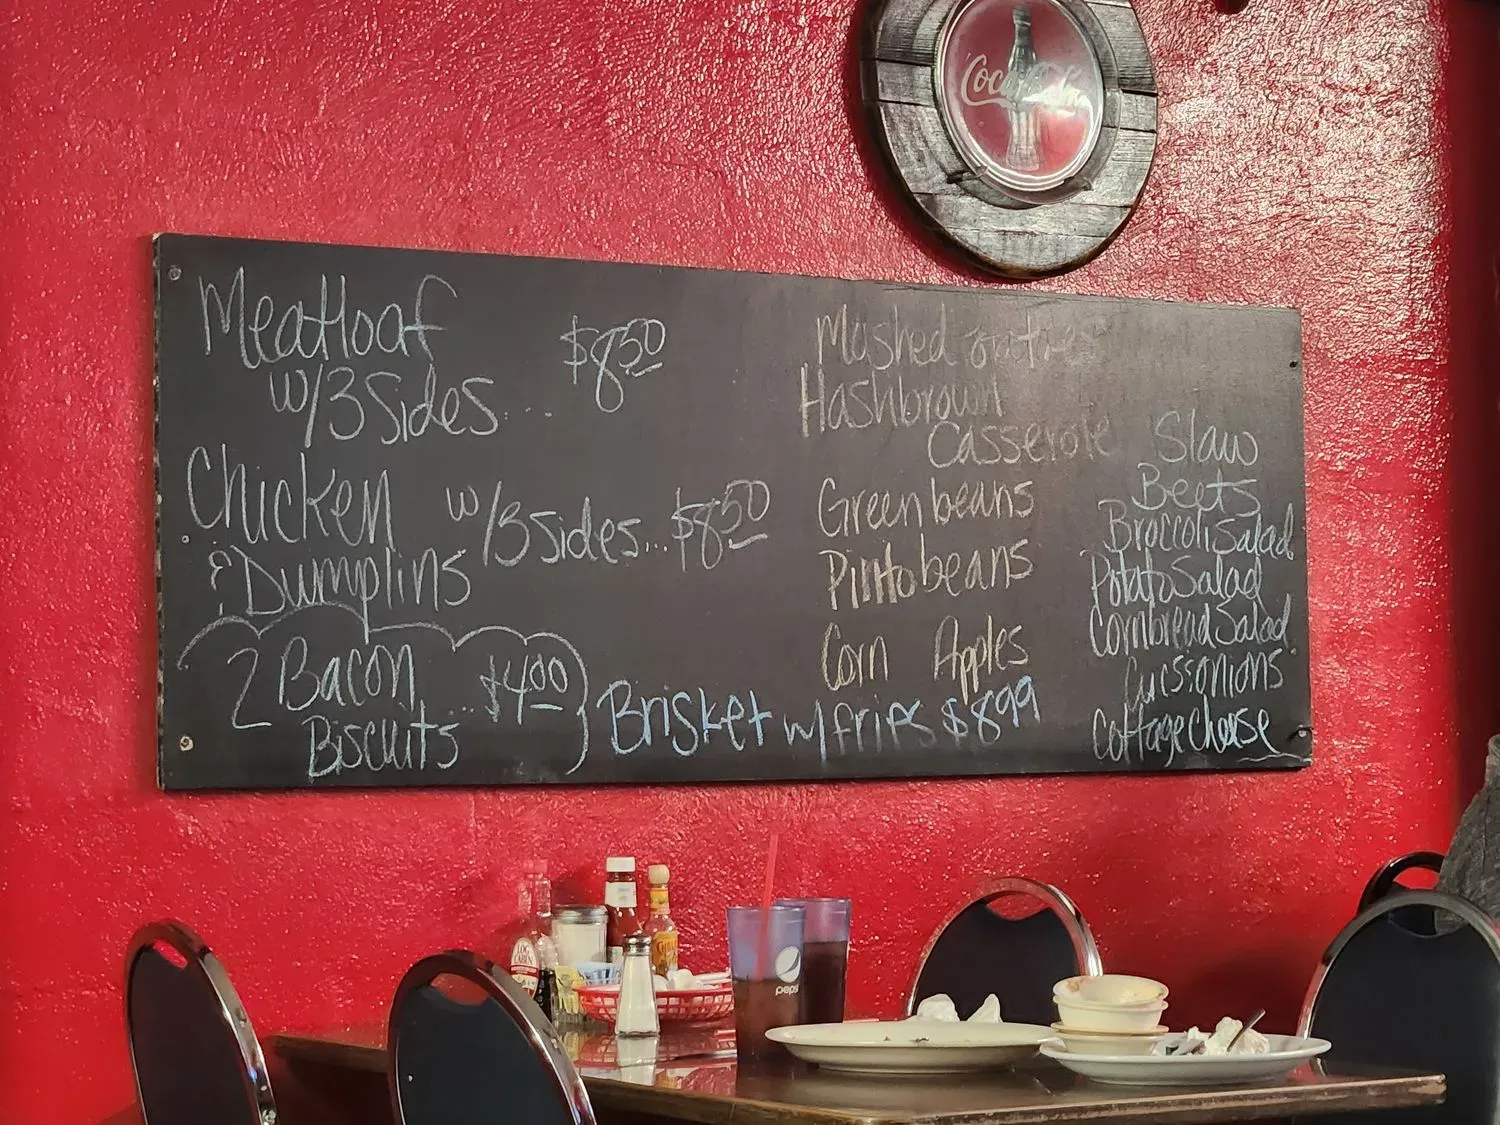 Coca-Cola
Meatloaf
w/3 Sides.... $8.50
Chicken w/3 Sides... $8.50
& Dumplins
2 Bacon ... $4.00
Biscuits
Brisket w/ fries $8.99
Mashed
Hashbrown
Casserole
Green beans
Pinto beans
Corn Apples
Slaw
Beets
Broccoli Salad
Potato Salad
Cornbread Salad
Cucs onions
Cottage cheese
LOG
CABIN
pepsi